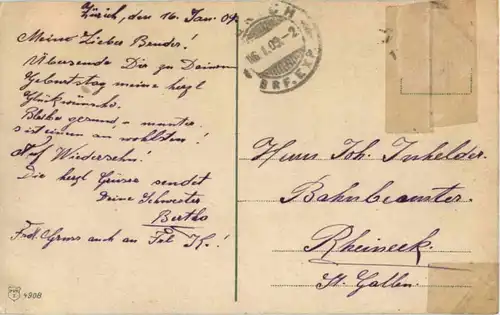 Zürich, den 16. Jan. 09.
Meine Lieber Bruder!
Übersende Dir zu Deinem
Geburtstag meine herzl
Glückwünsche.
Bleibe gesund, & munter
s'ist einem am wohlsten!
Auf Wiedersehn!
Die herzl Grüsse sendet
Deine Schwester
Bertha
Frdl. Gruss auch an Frl K.!
16.I.09.-2
BRF. EXP.
Herrn Joh. Inhelder
Bahnbeamter.
Rheineck.
St. Gallen.
4908